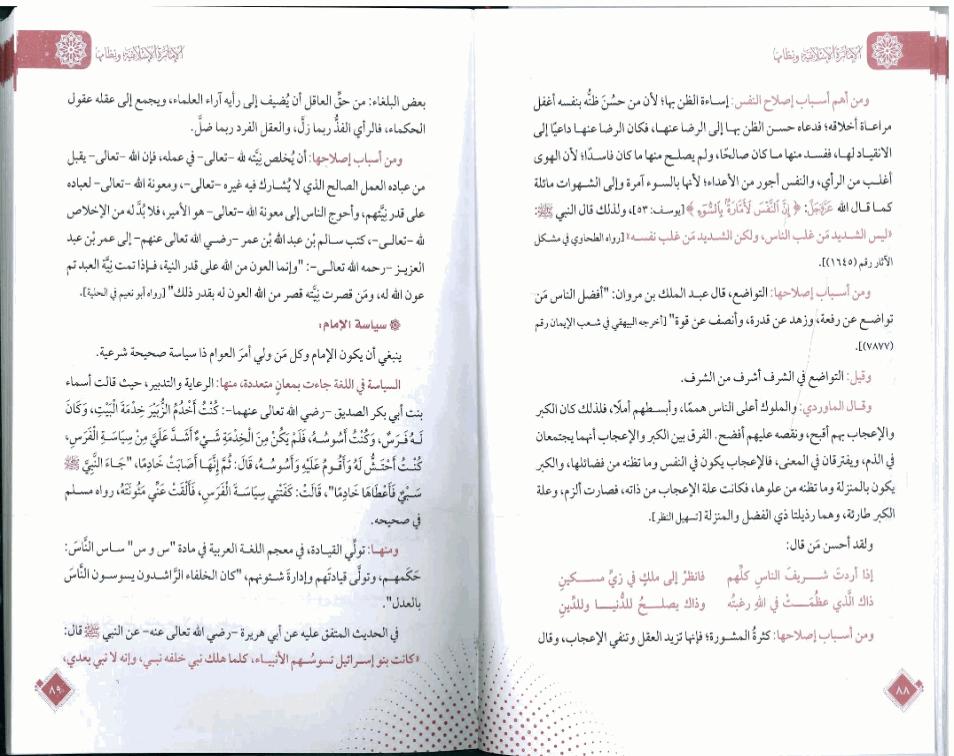 الإمارة الإسلامية ونظامها
ومن أهم أسباب إصلاح النفس: إساءة الظن بها؛ لأن من حُسنَ ظنُّه بنفسه أغفل
مراعاة أخلاقه؛ فدعاه حسن الظن بها إلى الرضا عنها، فكان الرضا عنها داعيًا إلى
الانقياد لها، ففسد منها ما كان صالحًا، ولم يصلح منها ما كان فاسدًا؛ لأن الهوى
أغلب من الرأي، والنفس أجور من الأعداء؛ لأنها بالسوء آمرة وإلى الشهوات مائلة
كما قال الله عَزَّوَجَلَّ: ﴿ إِنَّ ٱلنَّفْسَ لَأَمَّارَةٌۢ بِٱلسُّوٓءِ ﴾ [يوسف: ٥٣]، ولذلك قال النبي ﷺ:
«ليس الشديد مَن غلب الناس، ولكن الشديد مَن غلب نفسه» [رواه الطحاوي في مشكل
الآثار رقم (١٦٤٥)].
ومن أسباب إصلاحها: التواضع، قال عبد الملك بن مروان: "أفضل الناس مَن
تواضع عن رفعة، وزهد عن قدرة، وأنصف عن قوة" [أخرجه البيهقي في شعب الإيمان رقم
(٧٨٧٧)].
وقيل: التواضع في الشرف أشرف من الشرف.
وقال الماوردي: والملوك أعلى الناس هممًا، وأبسطهم أملًا، فلذلك كان الكبر
والإعجاب بهم أقبح، ونقصه عليهم أفضح. الفرق بين الكبر والإعجاب أنهما يجتمعان
في الذم، ويفترقان في المعنى، فالإعجاب يكون في النفس وما تظنه من فضائلها، والكبر
يكون بالمنزلة وما تظنه من علوها، فكانت علة الإعجاب من ذاته، فصارت ألزم، وعلة
الكبر طارئة، وهما رذيلتا ذي الفضل والمنزلة [تسهيل النظر].
ولقد أحسن مَن قال:
إذا أردتَ شـريفَ الناسِ كلِّهم فانظرْ إلى ملكٍ في زيِّ مسـكينِ
ذاك الَّذي عظُمَـتْ في اللهِ رغبتُه وذاك يصلـحُ للدُّنيـا وللدِّينِ
ومن أسباب إصلاحها: كثرةُ المشورة؛ فإنها تزيد العقل وتنفي الإعجاب، وقال
٨٨
الإمارة الإسلامية ونظامها
بعض البلغاء: من حقِّ العاقل أن يُضيف إلى رأيه آراء العلماء، ويجمع إلى عقله عقول
الحكماء، فالرأي الفذُّ ربما زلَّ، والعقل الفرد ربما ضلَّ.
ومن أسباب إصلاحها: أن يُخلص نِيَّته لله -تعالى- في عمله، فإن الله -تعالى- يقبل
من عباده العمل الصالح الذي لا يُشارك فيه غيره -تعالى-، ومعونة الله -تعالى- لعباده
على قدر نِيَّتهم، وأحوج الناس إلى معونة الله -تعالى- هو الأمير، فلا بُدَّ له من الإخلاص
لله -تعالى-، كتب سالم بن عبد الله بن عمر -رضي الله تعالى عنهم- إلى عمر بن عبد
العزيز -رحمه الله تعالى-: "وإنما العون من الله على قدر النية، فإذا تمت نِيَّة العبد تم
عون الله له، ومَن قصرت نِيَّته قصر من الله العون له بقدر ذلك" [رواه أبو نعيم في الحلية].
سياسة الإمام:
ينبغي أن يكون الإمام وكل مَن ولي أمرَ العوام ذا سياسة صحيحة شرعية.
السياسة في اللغة جاءت بمعانٍ متعددة، منها: الرعاية والتدبير، حيث قالت أسماء
بنت أبي بكر الصديق -رضي الله تعالى عنهما-: كُنْتُ أَخْدُمُ الزُّبَيْرَ خِدْمَةَ الْبَيْتِ، وَكَانَ
لَهُ فَرَسٌ، وَكُنْتُ أَسُوسُهُ، فَلَمْ يَكُنْ مِنَ الْخِدْمَةِ شَيْءٌ أَشَدَّ عَلَيَّ مِنْ سِيَاسَةِ الْفَرَسِ،
كُنْتُ أَحْتَشُّ لَهُ وَأَقُومُ عَلَيْهِ وَأَسُوسُهُ، قَالَ: ثُمَّ إِنَّهَا أَصَابَتْ خَادِمًا، "جَاءَ النَّبِيَّ ﷺ
سَبْيٌ فَأَعْطَاهَا خَادِمًا"، قَالَتْ: كَفَتْنِي سِيَاسَةَ الْفَرَسِ، فَأَلْقَتْ عَنِّي مَئُونَتَهُ، رواه مسلم
في صحيحه.
ومنها: تولِّي القيادة، في معجم اللغة العربية في مادة "س و س" ساس النَّاسَ:
حَكَمهم، وتولَّى قيادتَهم وإدارةَ شئونهم، "كان الخلفاء الرَّاشدون يسوسون النَّاسَ
بالعدل".
في الحديث المتفق عليه عن أبي هريرة -رضي الله تعالى عنه- عن النبي ﷺ قال:
«كانت بنو إسرائيل تسوسُـهم الأنبياء، كلما هلك نبي خلفه نبي، وإنه لا نبي بعدي،
٨٩